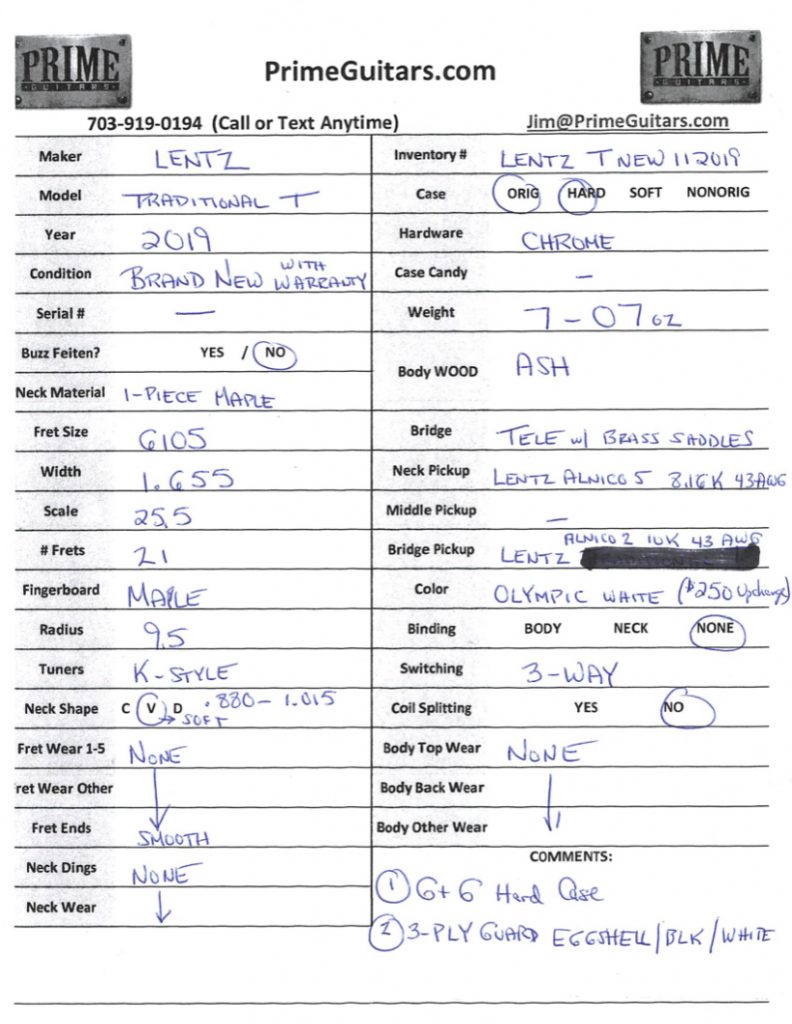 PRIME
GUITARS
PrimeGuitars.com
PRIME
GUITARS
703-919-0194 (Call or Text Anytime)
Jim@PrimeGuitars.com
Maker LENTZ
Inventory # LENTZ T NEW 11 2019
Model TRADITIONAL T
Case ORIG HARD SOFT NONORIG
Year 2019
Hardware CHROME
Condition BRAND NEW WITH WARRANTY
Case Candy —
Serial # —
Weight 7-07oz
Buzz Feiten? YES / NO
Body WOOD ASH
Neck Material 1-PIECE MAPLE
Fret Size 6105
Bridge TELE w/ BRASS SADDLES
Width 1.655
Neck Pickup LENTZ ALNICO 5 8.16K 43AWG
Scale 25.5
Middle Pickup —
# Frets 21
Bridge Pickup LENTZ ALNICO 2 10K 43 AWG
Fingerboard MAPLE
Color OLYMPIC WHITE ($250 Upcharge)
Radius 9.5
Binding BODY NECK NONE
Tuners K-STYLE
Switching 3-WAY
Neck Shape C V D .880 - 1.015
→ SOFT
Coil Splitting YES NO
Fret Wear 1-5 NONE
Body Top Wear NONE
ret Wear Other
Body Back Wear
Fret Ends SMOOTH
Body Other Wear
Neck Dings NONE
COMMENTS:
① G+G Hard Case
Neck Wear
② 3-PLY GUARD EGGSHELL/BLK/WHITE